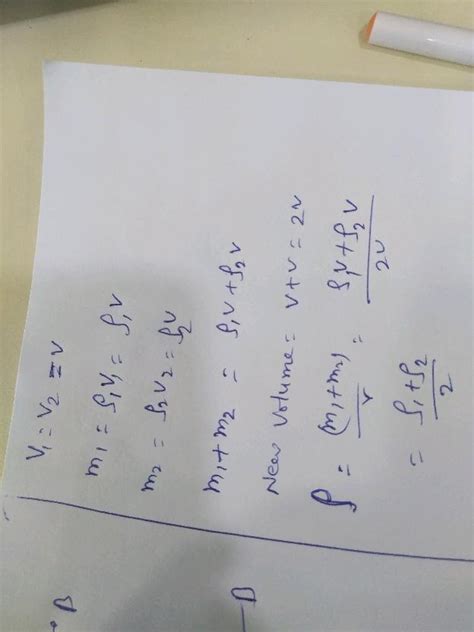 V₁ = V₂ = V
m₁ = ρ₁V₁ = ρ₁V
m₂ = ρ₂V₂ = ρ₂V
m₁ + m₂ = ρ₁V + ρ₂V
New Volume = V + V = 2V
ρ = (m₁ + m₂) / V = ρ₁V + ρ₂V / 2V
= ρ₁ + ρ₂ / 2
B
B